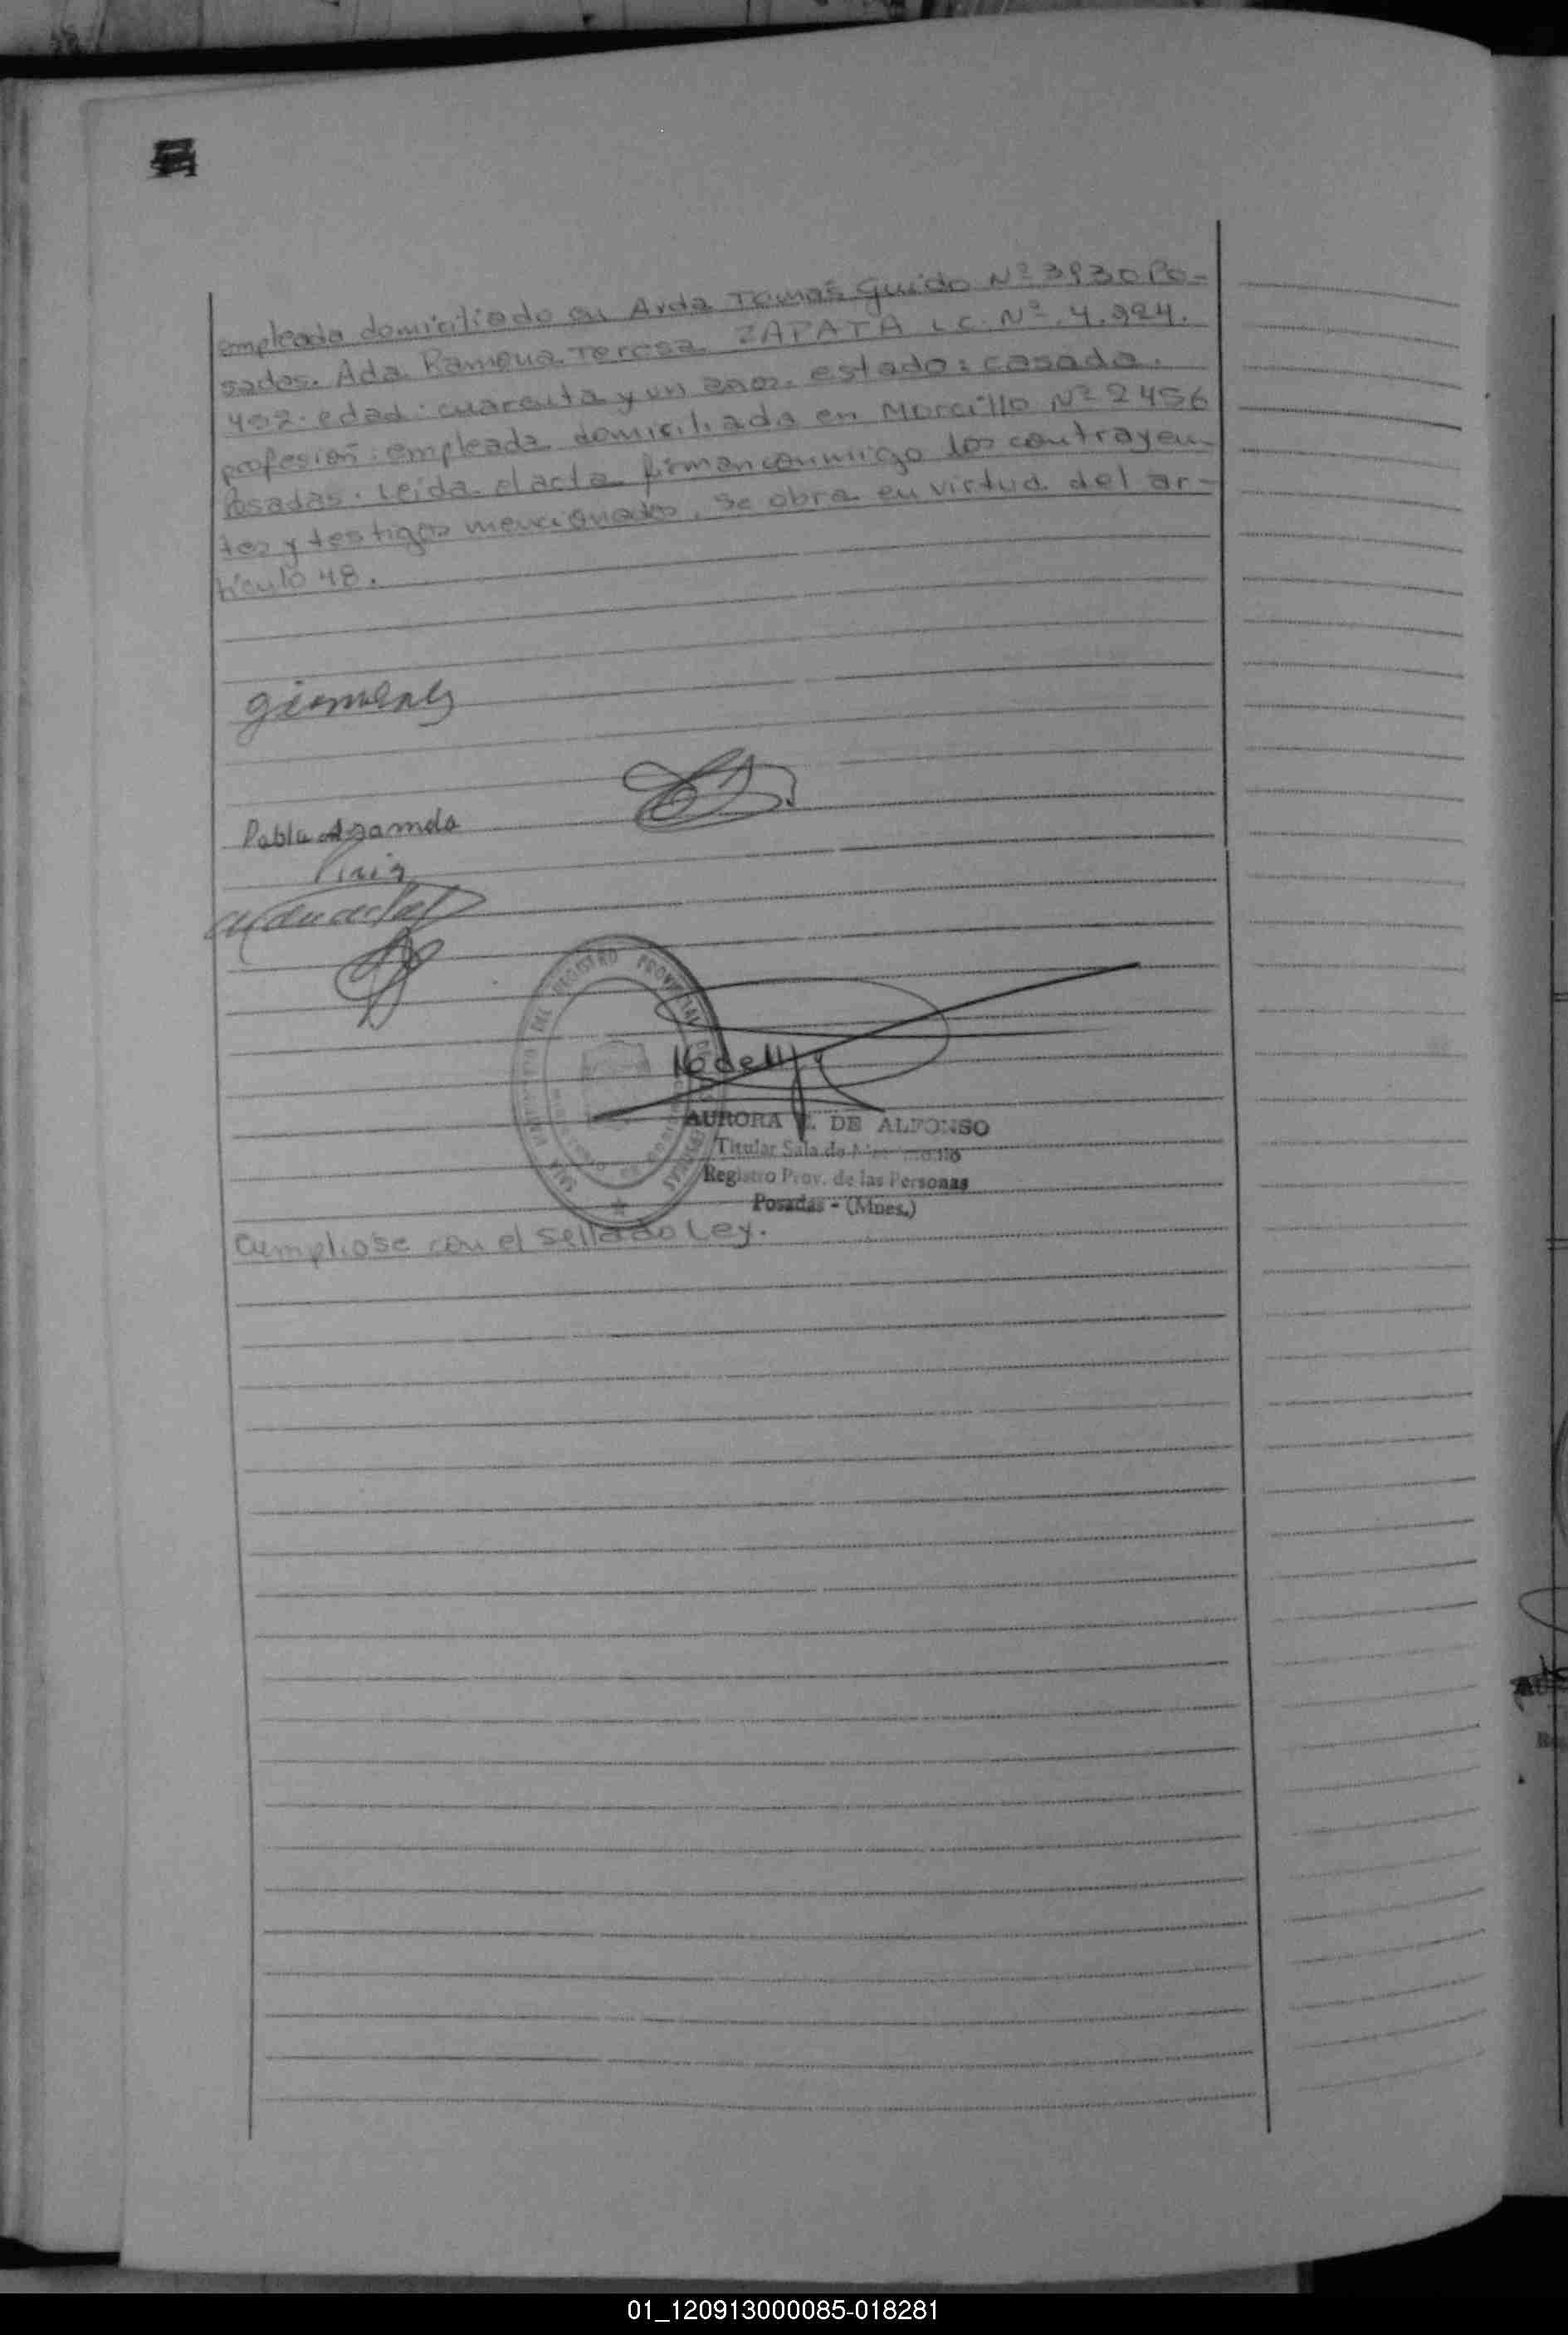 empleada domiciliado en Avda Tomás Guido Nº 3930 Po-
sadas. Ada Ramona Teresa ZAPATA L.C. Nº 4.994.
402. edad: cuarenta y un años. estado: casada.
profesión: empleada domiciliada en Morcillo Nº 2456
Posadas. Leída el acta firman conmigo los contrayen-
tes y testigos mencionados, se obra en virtud del ar-
tículo 48.
Gimenez
Pabla
AURORA DE ALFONSO
Titular Sala de
Registro Prov. de las Personas
Posadas - (Mnes.)
DEL REGISTRO PROVINCIAL DE LAS PERSONAS
Cumpliose con el sellado Ley.
01_120913000085-018281